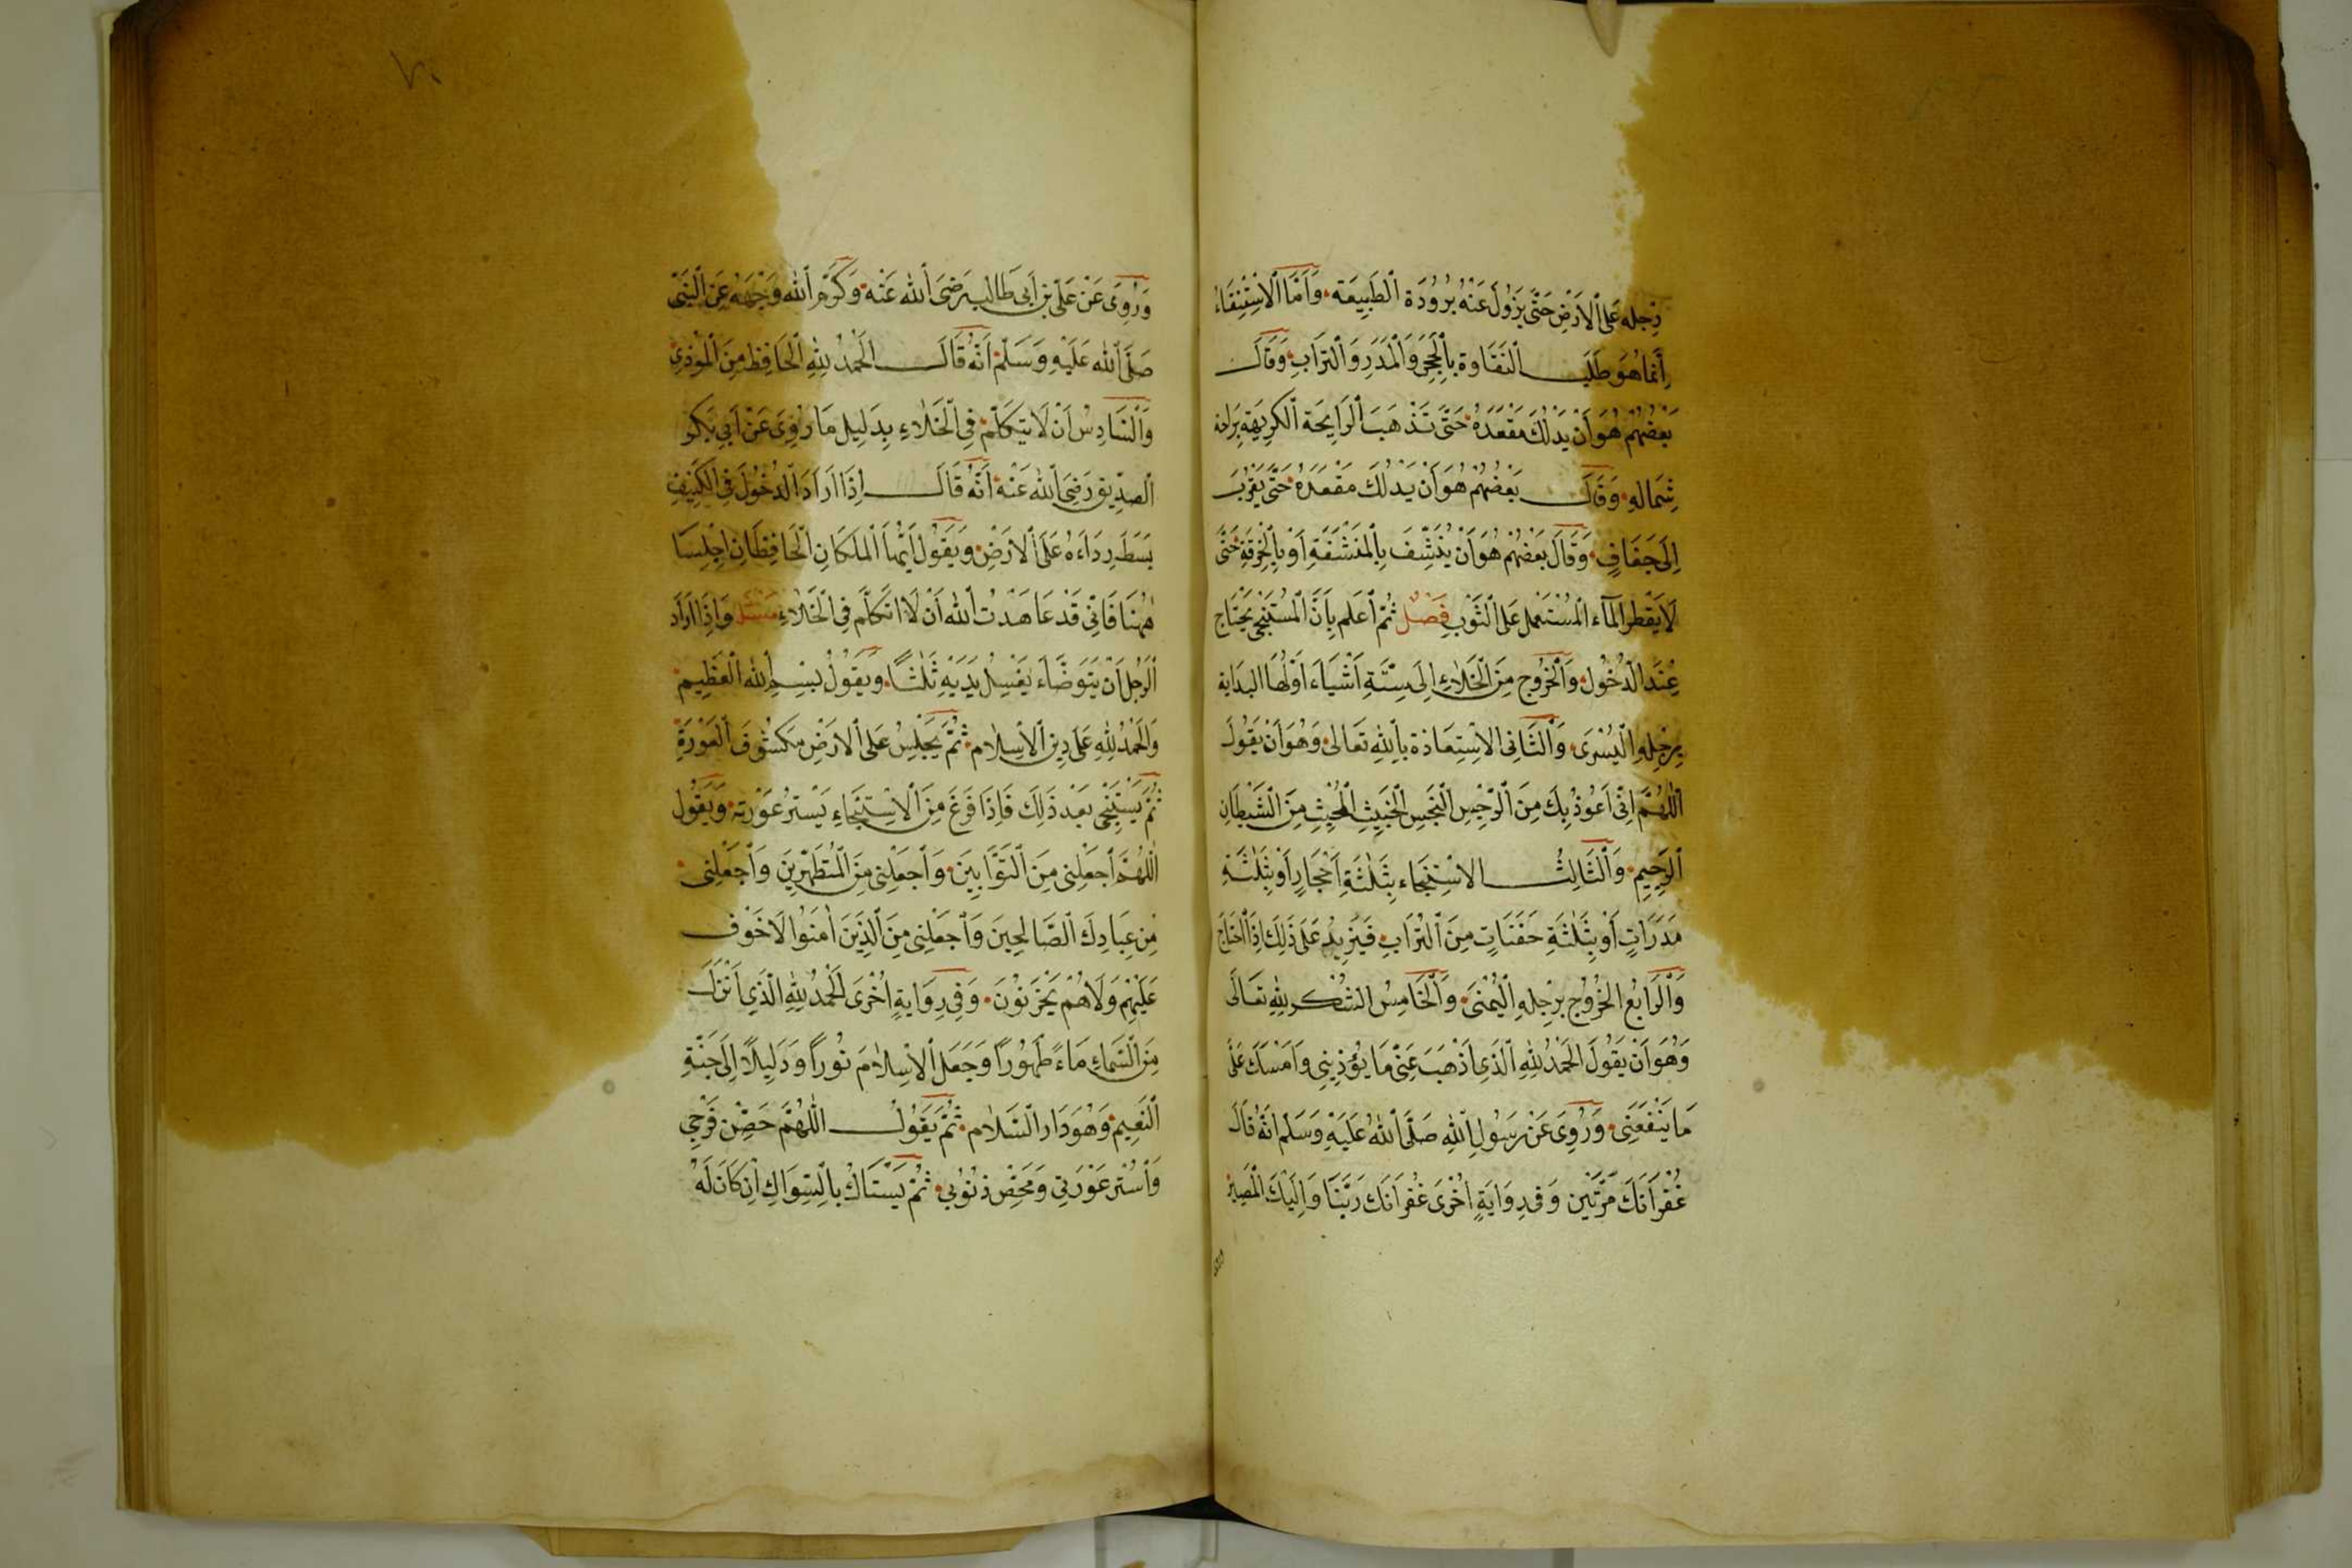 رِجله عَلَى الْاَرْضِ حَتّٰى يَزُولَ عَنْهُ بُرُودَة الطَّبِيعَة وَاَمَّا الْاِسْتِنْقَاءُ
اِنَّمَا هُوَ طَلَبُ النَّقَاوة بِالْحَجَرِ وَالْمَدَرِ وَالتّرَابِ وَقَالَ
بَعْضُهُمْ هُوَ اَنْ يَدْلُكَ مَقْعَدَهُ حَتّٰى تَذْهَبَ الرَايِحَة الْكَرِيهَة بِرَاحَة
شِمَالِهِ وَقَالَ بَعْضُهُمْ هُوَ اَنْ يَدْلُكَ مَقْعَدَهُ حَتّٰى يَقْرُبَ
اِلَى جَفَافٍ وَقَالَ بَعْضُهُمْ هُوَ اَنْ يُنَشِّفَ بِالْمَنْشَفَةِ اَوْ بِالْخِرْقَةِ حَتّٰى
لَا يَقْطُر الْمَآء الْمُسْتَعْمل عَلَى الثَّوْبِ فَصْلٌ ثُمَّ اعْلَم بِاَنَّ الْمُسْتَنْجِى يَحْتَاج
عِنْدَ الدُّخُول وَالْخُرُوجِ مِنَ الْخَلَاءِ اِلَى سِتَّةِ اَشْيَاءَ اَوَّلُهَا البدَاية
بِرِجْلِهِ الْيُسْرَى وَالثَّانِى الاسْتِعَاذة بِاللهِ تَعَالٰى وَهُوَ اَنْ يَقُولَ
اَللّٰهُمَّ اِنِّى اَعُوذُ بِكَ مِنَ الرِّجْسِ النَّجِسِ الْخَبِيثِ الْمُخْبِثِ مِنَ الشَّيْطَانِ
الرَّجِيمِ وَالثَّالِثُ الاسْتِنْجَاء بِثَلٰثَةِ اَحْجَارٍ اَوْ بِثَلٰثَةِ
مَدَرَاتٍ اَوْ بِثَلٰثَةِ حَفَنَاتٍ مِنَ التُّرَابِ فَيَزِيدُ عَلَى ذٰلِكَ اِذَا احْتَاجَ
وَالرَّابِعُ الخُرُوج بِرِجْلِهِ الْيُمْنٰى وَالْخَامِسُ الشُّكر لِلّٰهِ تَعَالَى
وَهُوَ اَنْ يَقُولَ الْحَمْدُ لِلّٰهِ الَّذِى اَذْهَبَ عَنِّى مَا يُؤْذِينِى وَاَمْسَكَ عَلَىَّ
مَا يَنْفَعُنِى وَرُوِىَ عَنْ رَسُولِ اللهِ صَلَّى اللهُ عَلَيْهِ وَسَلَّم اَنَّهُ قَالَ
غُفْرَانَكَ مَرَّتَيْن وَفى رِوَايَةٍ اُخْرَى غُفْرَانَكَ رَبَّنَا وَاِلَيْكَ الْمَصِيرُ
وَرُوِىَ عَنْ عَلِىّ بْن اَبى طَالِب رَضِىَ الله عَنْه وَكَرَّمَ الله وَجْهَهُ عَنِ النَّبِىّ
صَلَّى الله عَلَيْهِ وَسَلَّم اَنَّهُ قَالَ الْحَمْدُ لِلّٰهِ الْحَافِظِ مِنَ الْمُوْذِى
وَالسَّادِسُ اَنْ لَا يَتَكَلَّمَ فِى الْخَلَاءِ بِدَلِيل مَا رُوِىَ عَنْ اَبِى بَكْر
الصِّدِّيق رَضِىَ الله عَنْه اَنَّهُ قَالَ اِذَا اَرَادَ الدُّخُولَ فِى الْكَنِيفِ
بَسَطَ رِدَاءَهُ عَلَى الْاَرْضِ وَيَقُول اَيُّهَا الْمَلَكَانِ الْحَافِظَانِ اِجْلِسَا
هٰهُنَا فَاِنِّى قَدْ عَاهَدْتُ الله اَنْ لَا اَتَكَلَّم فِى الْخَلَاءِ مَسْئَلَة وَاِذَا اَرَادَ
الرَّجُل اَنْ يَتَوَضَّاَء يَغْسِلُ يَدَيْهِ ثَلٰثًا وَيَقُولُ بِسْمِ اللهِ الْعَظِيمِ
وَالْحَمْدُ لِلّٰهِ عَلَى دِينِ الْاِسْلَام ثُمَّ يَجْلِسُ عَلَى الْاَرْضِ مَكْشُوفَ الْعَوْرَةِ
ثُمَّ يَسْتَنْجِى بَعْدَ ذٰلِكَ فَاِذَا فَرَغَ مِنَ الْاِسْتِنْجَاءِ يَسْتُر عَوْرَته وَيَقُول
اَللّٰهُمَّ اجْعَلْنِى مِنَ التَّوَّابِينَ وَاجْعَلْنِى مِنَ الْمُتَطَهِّرِينَ وَاجْعَلْنِى
مِنْ عِبَادِكَ الصَّالِحِينَ وَاجْعَلْنِى مِنَ الَّذِينَ اٰمَنُوا لَا خَوْف
عَلَيْهِمْ وَلَا هُمْ يَحْزَنُوْنَ وَفِى رِوَايَةٍ اُخْرَى اَلْحَمْدُ لِلّٰهِ الَّذِى اَنْزَلَ
مِنَ السَّمَاءِ مَاءً طَهُورًا وَجَعَلَ الْاِسْلَامَ نُورًا وَدَلِيلًا اِلَى جَنَّةِ
النَّعِيم وَهُوَ دَار السَّلَام ثُمَّ يَقُولُ اَللّٰهُمَّ حَصِّنْ فَرْجِى
وَاسْتُر عَوْرَتِى وَمَحِّصْ ذنُوبِى ثُمَّ يَسْتَاكُ بِالسِّوَاكِ اِنْ كَانَ لَهُ